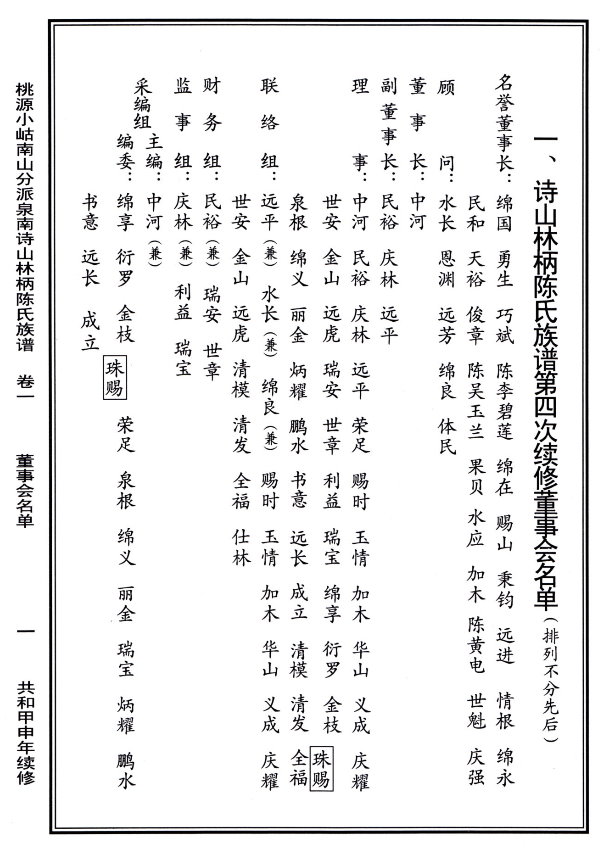 一、诗山林柄陈氏族谱第四次续修董事会名单(排列不分先后)
名誉董事长：绵国 勇生 巧斌 陈李碧莲 绵在 赐山 秉钧 远进 情根 绵永
民和 天裕 俊章 陈吴玉兰 果贝 水应 加木 陈黄电 世魁 庆强
顾问：水长 恩渊 远芳 绵良 体民
董事长：中河
副董事长：民裕 庆林 远平
理事：中河 民裕 庆林 远平 荣足 赐时 玉情 加木 华山 义成 庆耀
世安 金山 远虎 瑞安 世章 利益 瑞宝 绵享 衍罗 金枝 珠赐
泉根 绵义 丽金 炳耀 鹏水 书意 远长 成立 清模 清发 全福
联络组：远平(兼) 水长(兼) 绵良(兼) 赐时 玉情 加木 华山 义成 庆耀
世安 金山 远虎 清模 清发 全福 仕林
财务组：民裕(兼) 瑞安 世章
监事组：庆林(兼) 利益 瑞宝
采编组 主编：中河(兼)
编委：绵享 衍罗 金枝 珠赐 荣足 泉根 绵义 丽金 瑞宝 炳耀 鹏水
书意 远长 成立
桃源小岵南山分派泉南诗山林柄陈氏族谱 卷一 董事会名单 一 共和甲申年续修